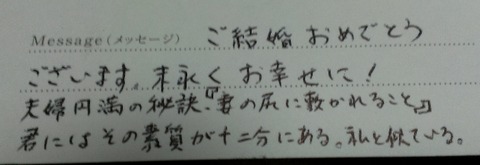 Message（メッセージ） ご結婚おめでとう
ございます。末永くお幸せに！
夫婦円満の秘訣『妻の尻に敷かれること』
君にはその素質が十二分にある。私と似ている。